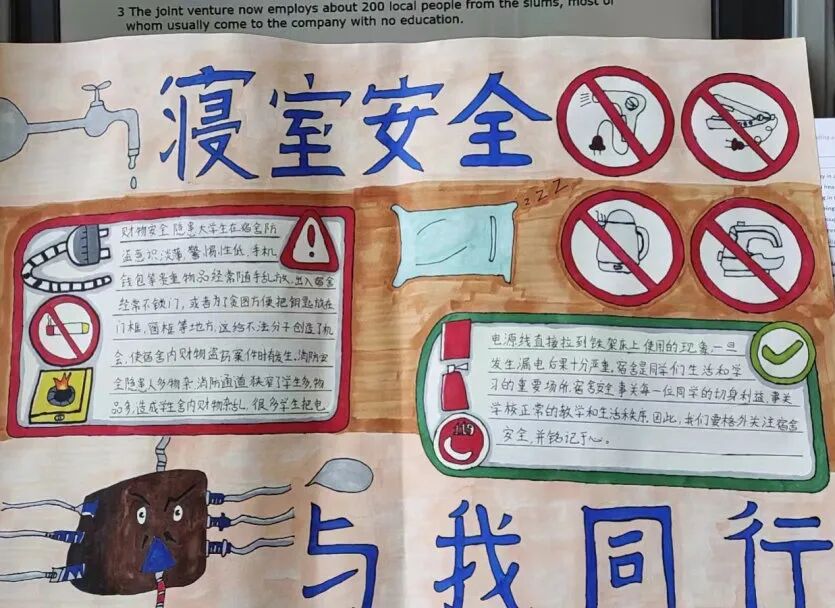 3 The joint venture now employs about 200 local people from the slums, most of
whom usually come to the company with no education.
寝室安全
zZZ
财物安全隐患大学生在宿舍防
盗意识淡薄,警惕性低,手机
钱包等贵重物品经常随手乱放,出入宿舍
经常不锁门,或者为了贪图方便把钥匙放在
门框,窗框等地方,这给不法分子创造了机
会,使宿舍内财物盗窃案件时有发生,消防安
全隐患人多物杂,消防通道狭窄,学生多,物
品多,造成学生舍内财物杂乱,很多学生把电
电源线直接拉到铁架床上使用的现象,一旦
发生漏电后果十分严重,宿舍是同学们生活和学
习的重要场所,宿舍安全事关每一位同学的切身利益,事关
学校正常的教学和生活秩序,因此,我们要格外关注宿舍
安全,并铭记于心。
119
与我同行